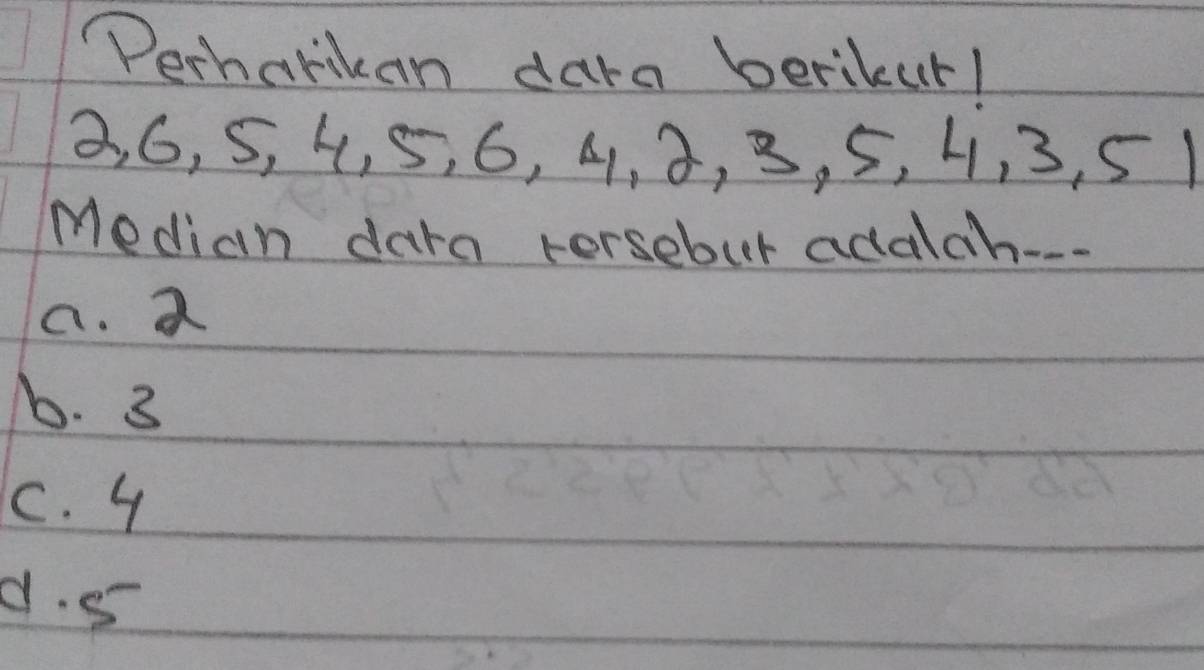 Perhatikan data berikut!
2, 6, 5, 4, 5, 6, 4, 2, 3, 5, 4, 3, 5 1
Median data tersebut adalah----
a. 2
b. 3
c. 4
d. 5